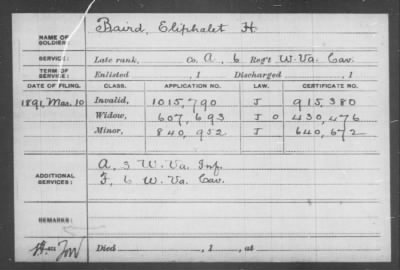 NAME OF SOLDIER: Baird, Eliphalet H
SERVICE: Late rank, Co. A, 6 Reg't W. Va. Cav.
TERM OF SERVICE: Enlisted , 1 Discharged , 1
DATE OF FILING. CLASS. APPLICATION NO. LAW. CERTIFICATE NO.
1891, Mar. 10 Invalid, 1015,790 J 915,380
Widow, 607,693 J O 430,476
Minor, 840,952 J 640,672
ADDITIONAL SERVICES: A, 3 W. Va. Inf.
F, 6 W. Va. Cav.
REMARKS:
Died , 1 , at